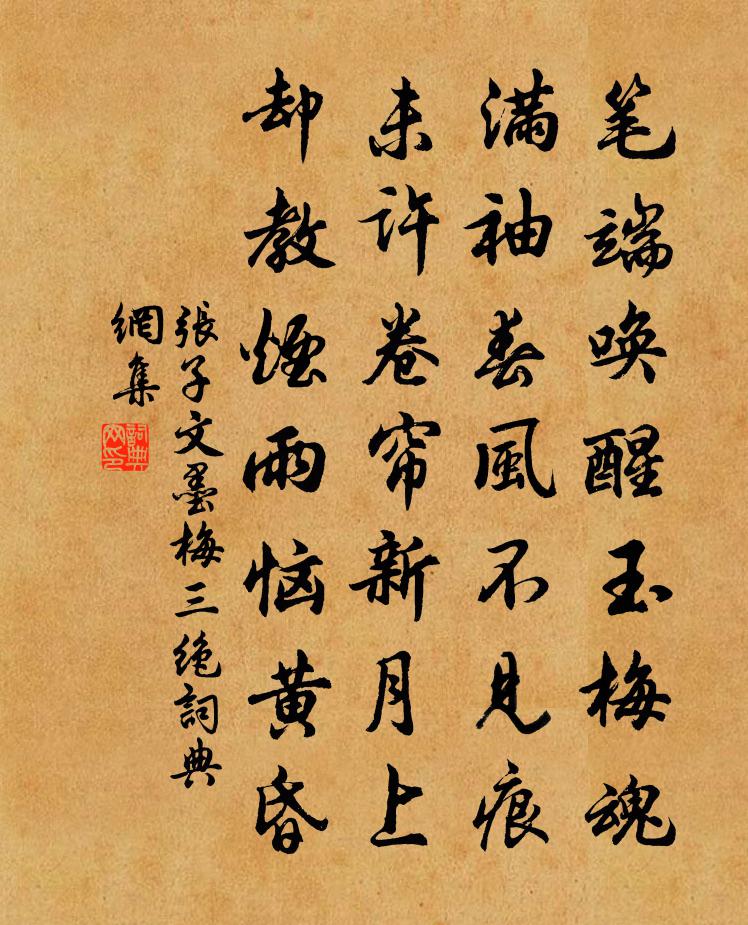 笔端唤醒玉梅魂
满袖春風不见痕
未许卷帘新月上
却教煙雨恼黄昏
張子文墨梅三绝詞典
網集
詞典
网印